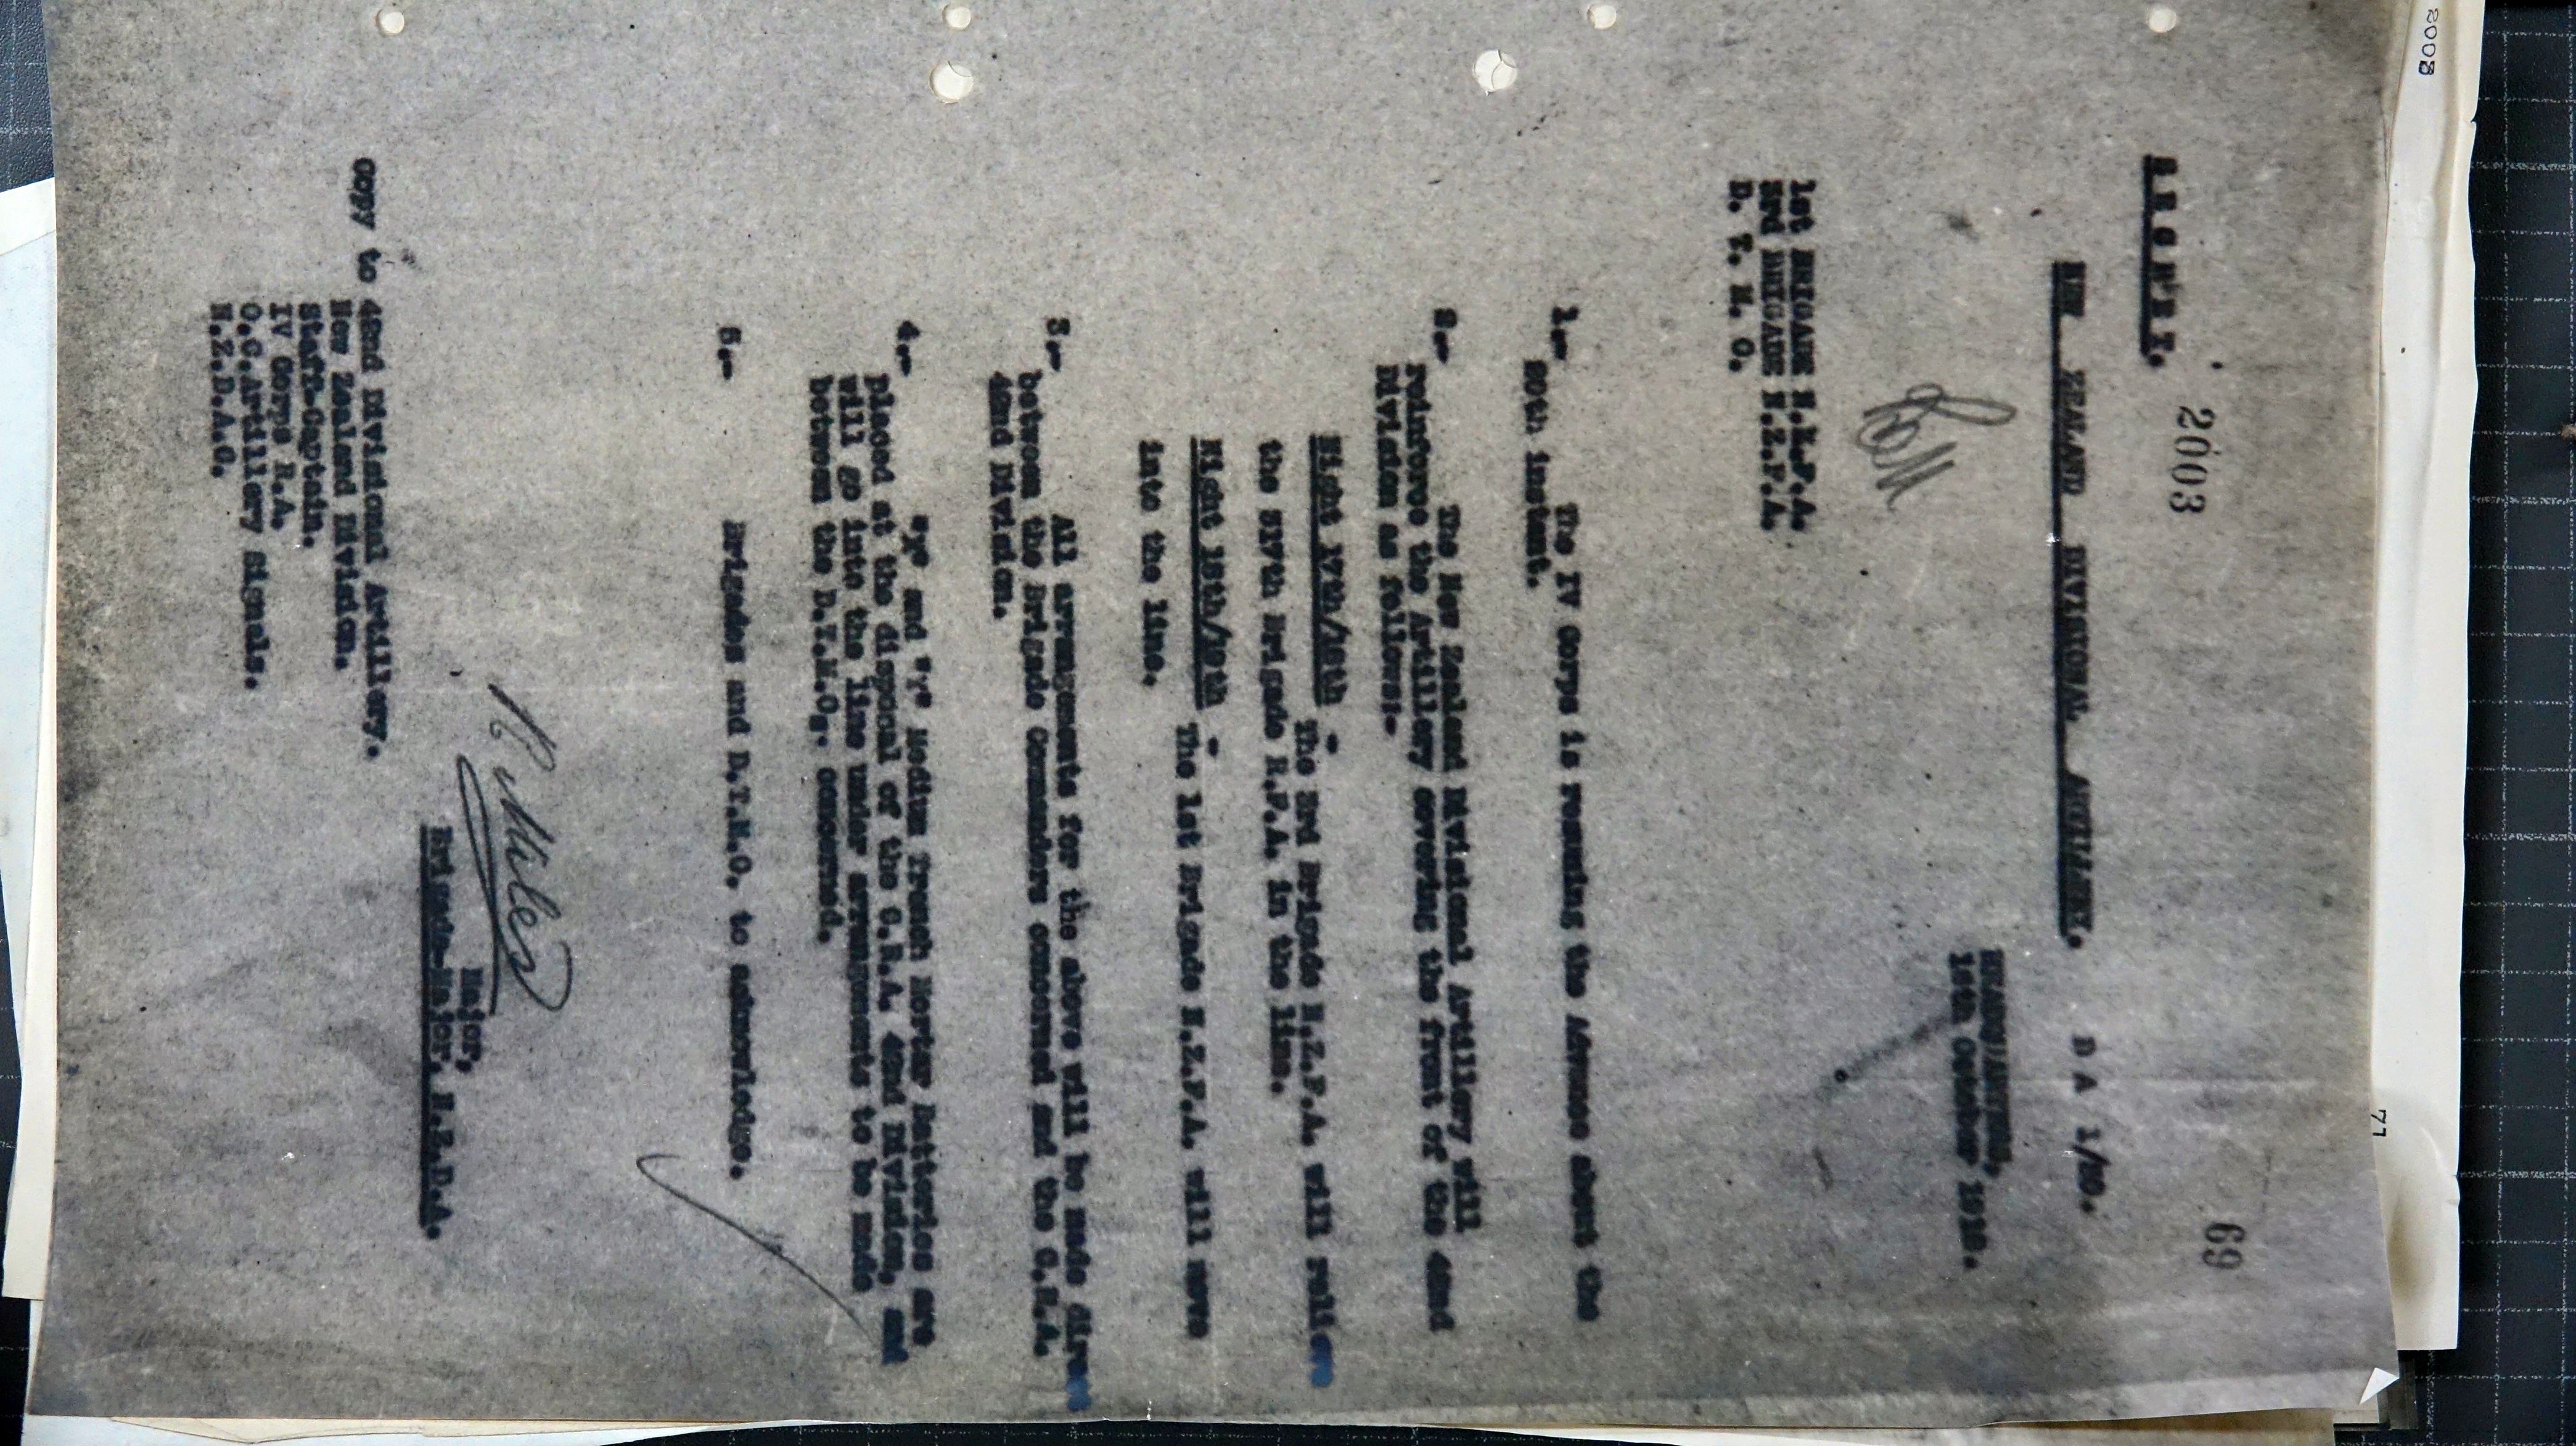 2008
71
20003
69
S E C R E T.
NEW ZEALAND DIVISIONAL ARTILLERY.
D A 1/
HEADQUARTERS,
October 1918.
1st BRIGADE N.Z.F.A.
3rd BRIGADE N.Z.F.A.
D. T. M. O.
1.- The IV Corps is resuming the Advance about the
20th instant.
2.- The New Zealand Divisional Artillery will
reinforce the Artillery covering the front of the 42nd
Division as follows:-
Night 17th/18th - The 3rd Brigade N.Z.F.A. will relieve
the 317th Brigade R.F.A. in the line.
Night 18th/19th - The 1st Brigade N.Z.F.A. will move
into the line.
3.- All arrangements for the above will be made direct
between the Brigade Commanders concerned and the C.R.A.
42nd Division.
4.- "X" and "Y" Medium Trench Mortar Batteries are
placed at the disposal of the C.R.A. 42nd Division, and
will go into the line under arrangements to be made
between the D.T.M.Os. concerned.
5.- Brigades and D.T.M.O. to acknowledge.
R Miles
Major,
Brigade-Major, N.Z.D.A.
Copy to 42nd Divisional Artillery.
New Zealand Division.
Staff-Captain.
IV Corps R.A.
O.C. Artillery Signals.
N.Z.D.A.C.